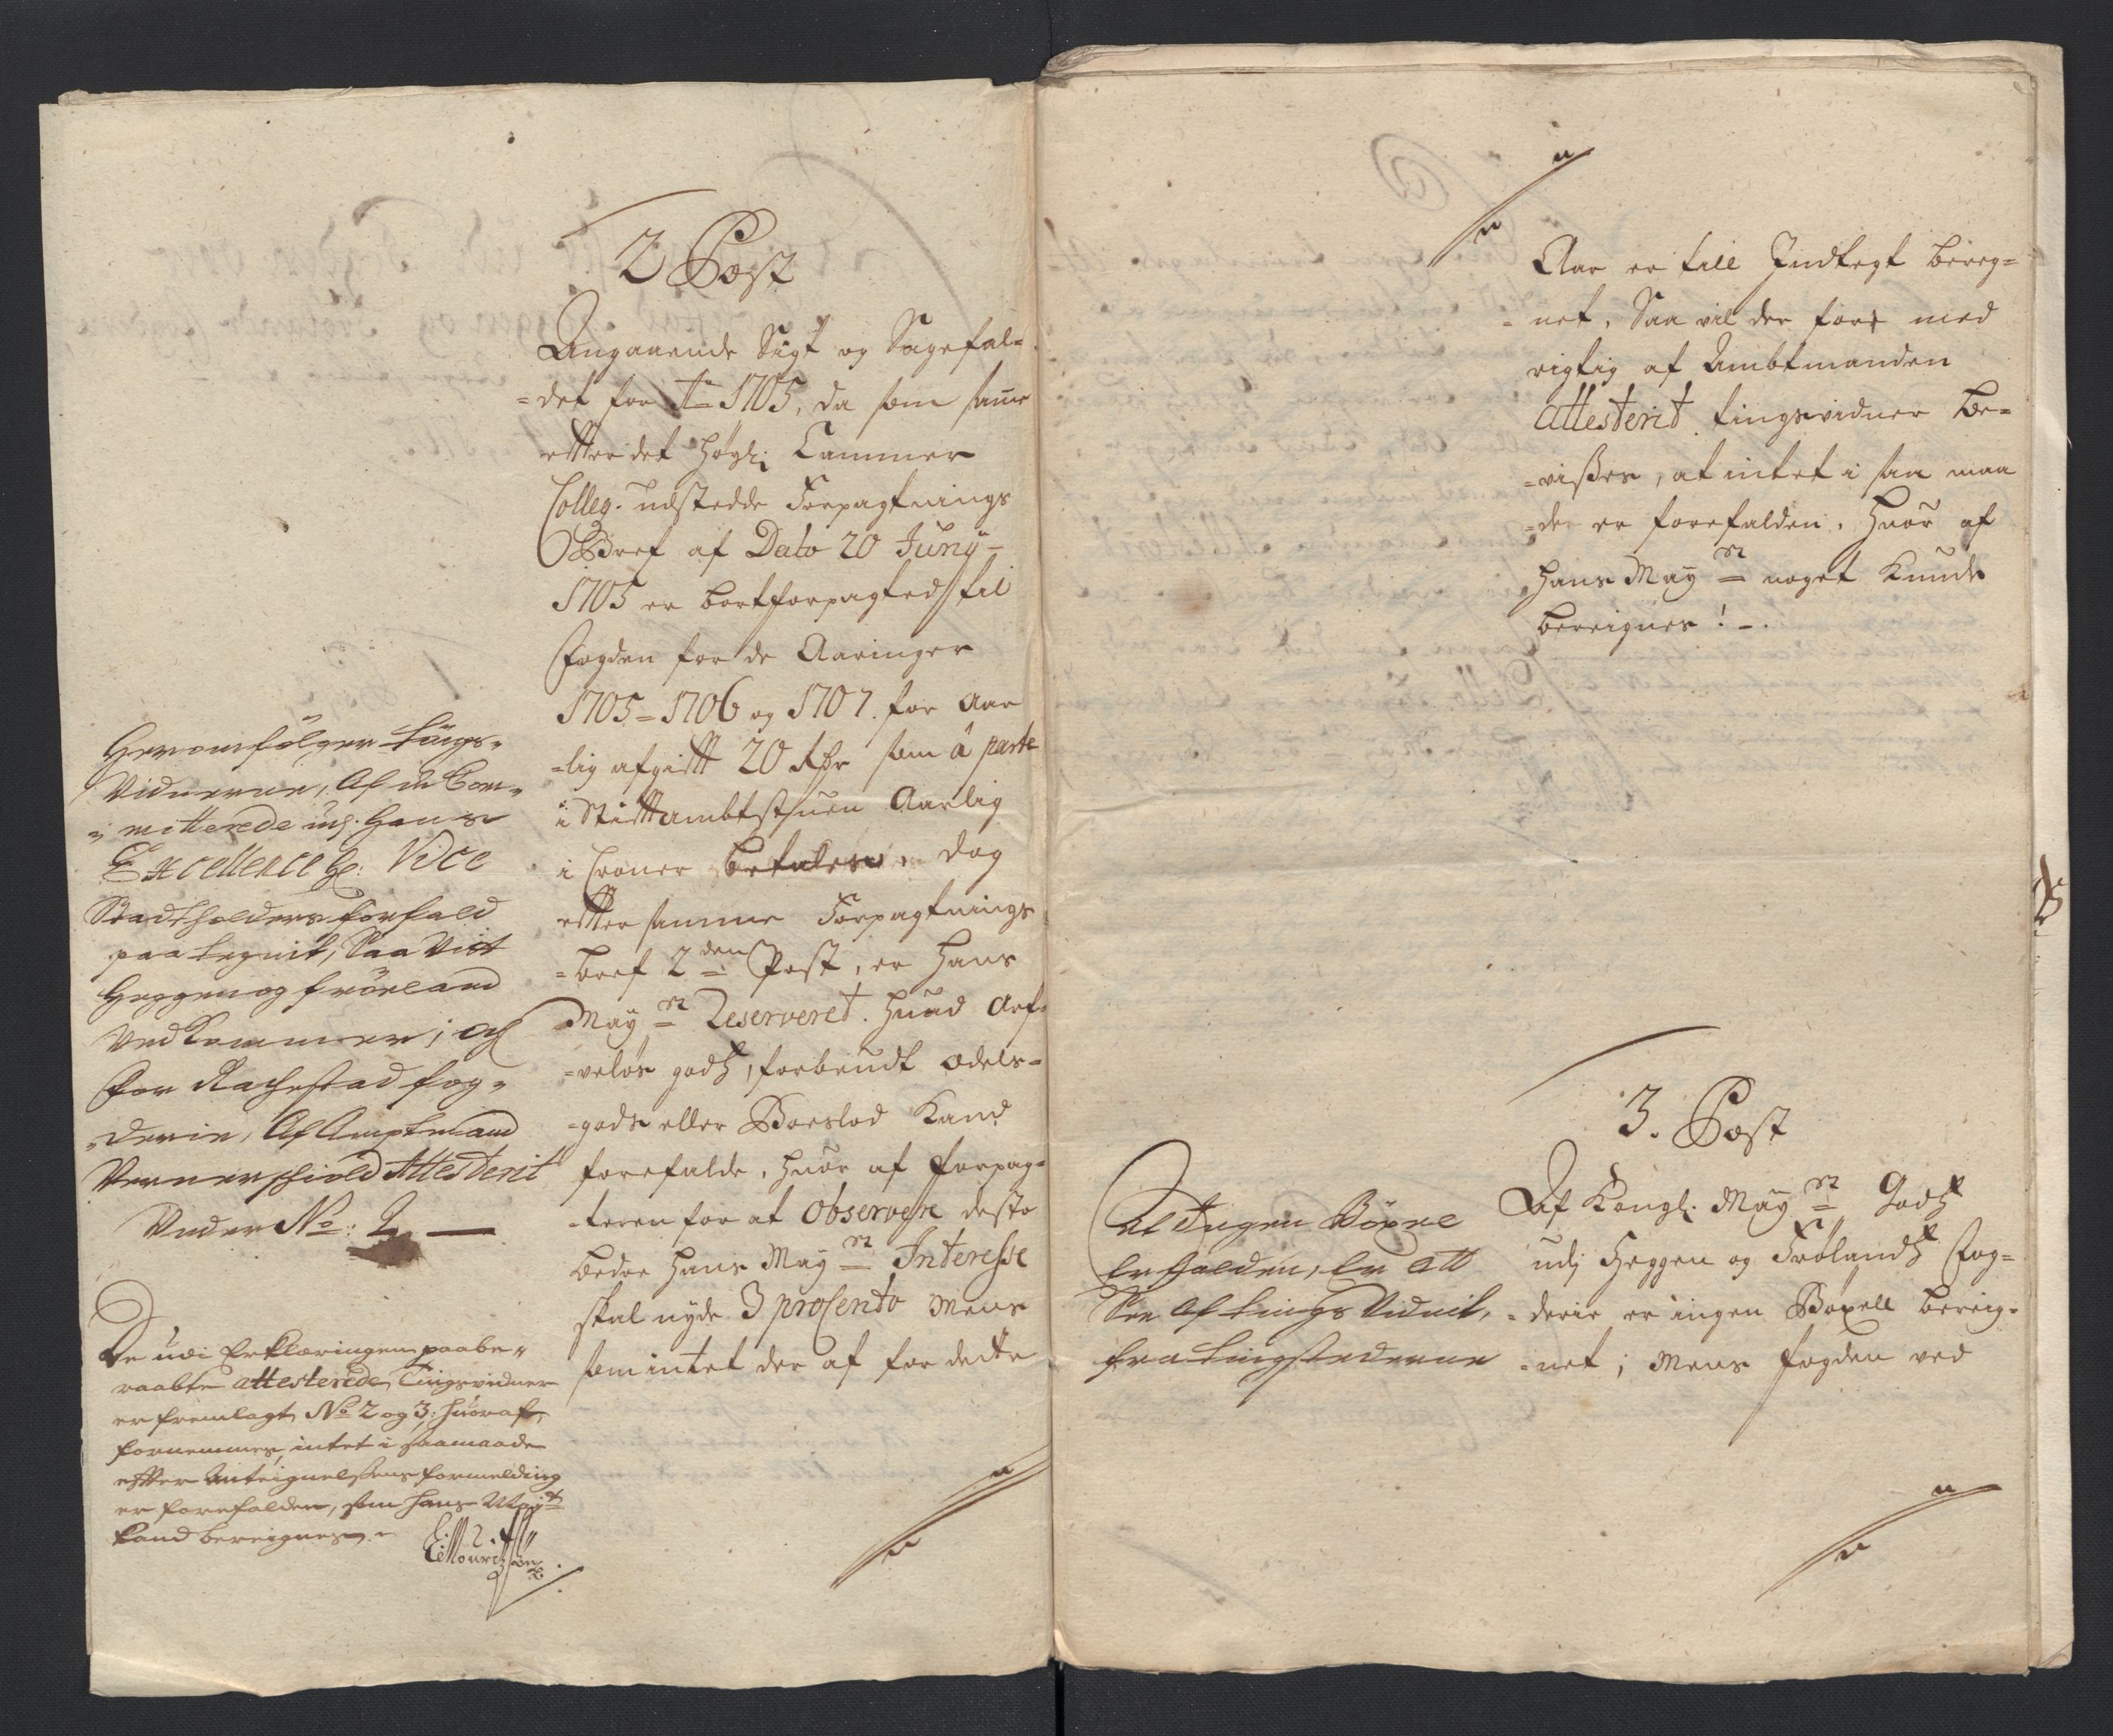 2 Post
Angaaende Sigt og Sagefal=
=det for Ao 1705, da som samme
effter det Høyl: Cammer
Colleg. udstedde Forpagtnings
Bref af Dato 20 Juny
1705 er bortforpagted til
Fogden for de Aaringer
1705 = 1706 og 1707. for Aar
=lig afgifft 20 Rdr som á parte
i Stifftambtstuen Aarlig
i Croner betales, dog
effter samme Forpagtnings
=bref 2den Post, er Hans
Mayts Reserveret. huad Arf=
=veløs gods, forbrudt odels=
=gods eller Boeslod Kand
forefalde, huor af forpag=
=teren for at observere desto
bedre Hans Mayts Interesse
skal nyde 3 procento Mens
som intet der af for dette
Herom følger tings=
Vidnerne, Af de Com=
=mitterede udj Hans
Excellence Hr: Vice
Stadtholders forfald
paa tegnit, Saa vitt
Heggen og frøeland
Ved Kommer; och
for Rachestad fog=
=derie, Af Amptmand
Vernerschiold Attesterit
Under No: 2 —
De udi Erklæringen paabe=
raabte attesterede Tingsvidner
er fremlagt No 2 og 3, huoraf
fornemmes, intet i saamaade
effter Antegnelsens formelding
er forefalden, som Hans Mayt
kand bereignes.
Aar er till Indtegt bereg=
=net, Saa vil der fore med
rigtig af Ambtmanden
attesterit tingsvidner be=
=vises, at intet i saa maa
=der er forefalden, huor af
Hans Mayts noget Kunde
bereignes! –.
3. Post
Af Kongl. Mayts Gods
udj Heggen og Frølands Fog=
=derie er ingen Bøxell bereig=
=net; Mens fogden ved
At Ingen Böxel
Er falden, Er att
See Af tings Vidnit,
fra tingstederne